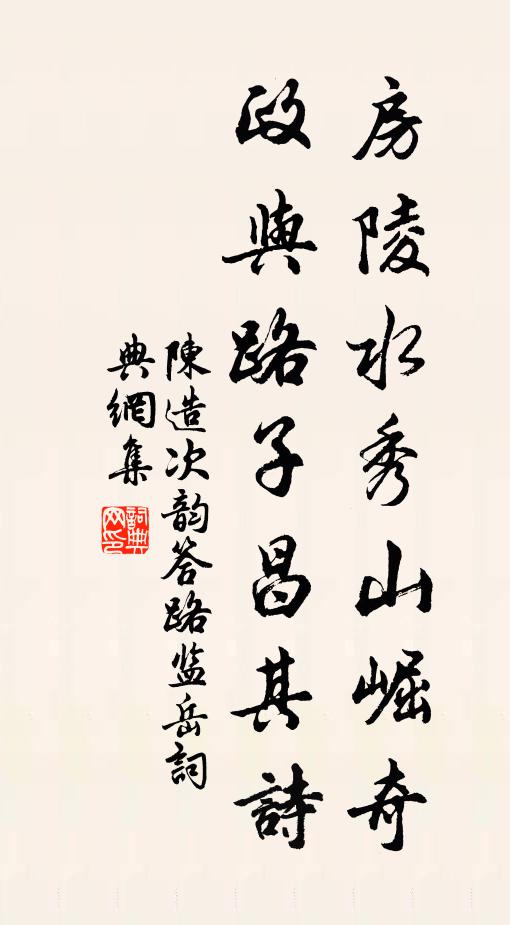 房陵水秀山崛奇
政與路子昌其詩
陳造次韵答路监岳詞
典網集
詞典
网印